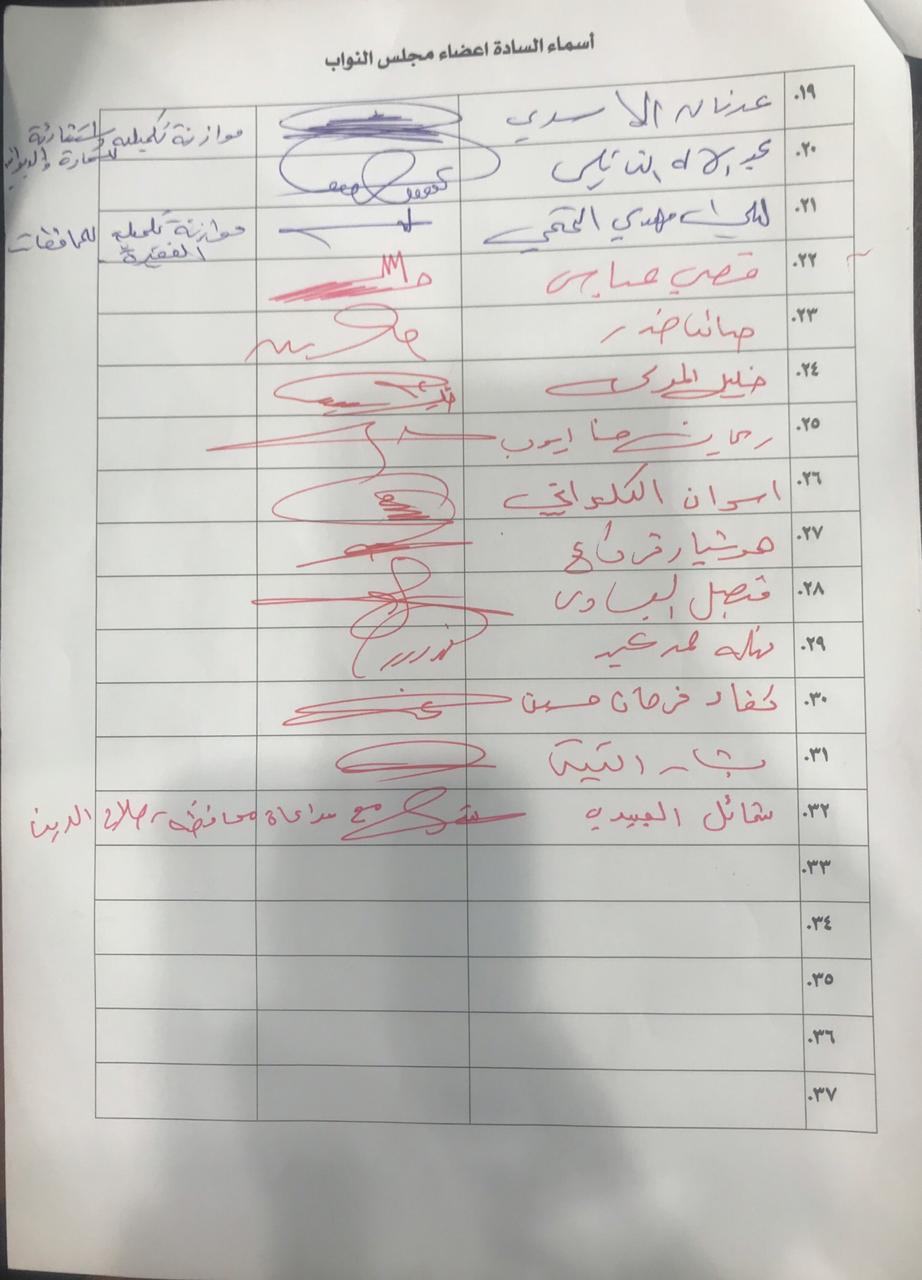 أسماء السادة اعضاء مجلس النواب
.١٩ عدنان الاسدي موازنة تكميلية استثمارية
.٢٠ عبد الاله النائلي
.٢١ مهدي موازنة تكميلية للمحافظات الفقيرة
.٢٢ قصي عباس
.٢٣ خضر
.٢٤ خليل المولى
.٢٥ ريحان حنا ايوب
.٢٦ اسوان الكلداني
.٢٧ هوشيار قرداغ
.٢٨ فيصل العيساوي
.٢٩ نهله حمد عبد
.٣٠ كفاء فرحان حسين
.٣١ بشار الكيكي
.٣٢ شمائل العبيدي مع مراعاة محافظة صلاح الدين
.٣٣
.٣٤
.٣٥
.٣٦
.٣٧